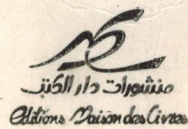 منشورات دار الكتب
Editions Maison des Livres